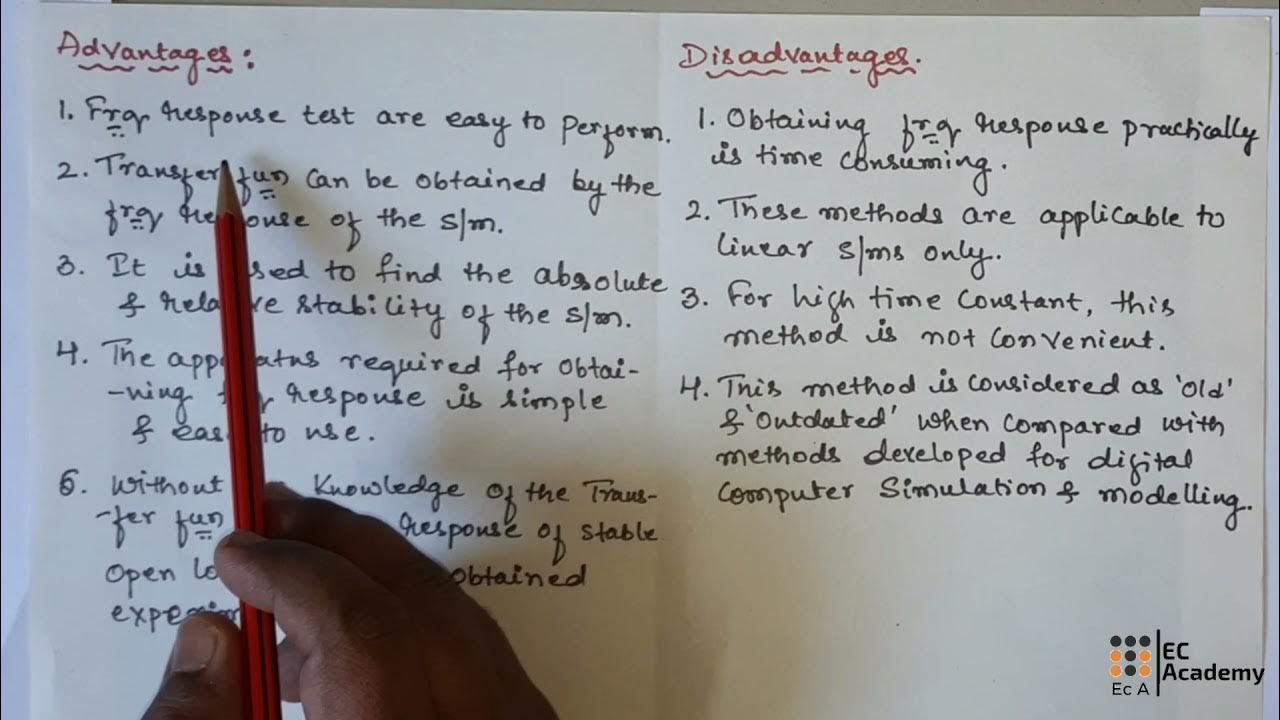 Advantages:
1. Frq response test are easy to perform.
2. Transfer fun can be obtained by the
frq response of the s/m.
3. It is used to find the absolute
& relative stability of the s/m.
4. The apparatus required for obtai-
-ning response is simple
& easy to use.
5. Without knowledge of the Trans-
-fer fun response of stable
open obtained
Disadvantages.
1. Obtaining frq response practically
is time consuming.
2. These methods are applicable to
linear s/ms only.
3. For high time constant, this
method is not convenient.
4. This method is considered as 'old'
& 'outdated' when compared with
methods developed for digital
computer simulation & modelling.
EC
Academy
Ec A